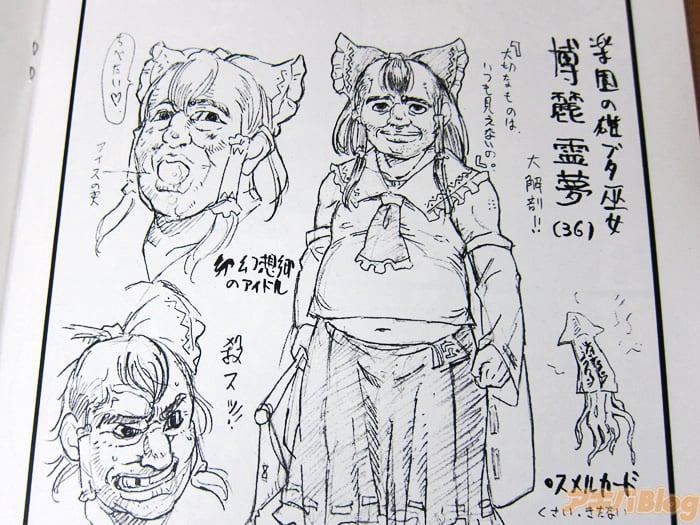 楽園の雄ブタ巫女
博麗霊夢
(36)
大解剖!!
『大切なものは、
いつも見えないの。』
アイスの実
幻想郷
のアイドル
殺スッ!!
スメルカード
くさい、きたない
アキバBlog